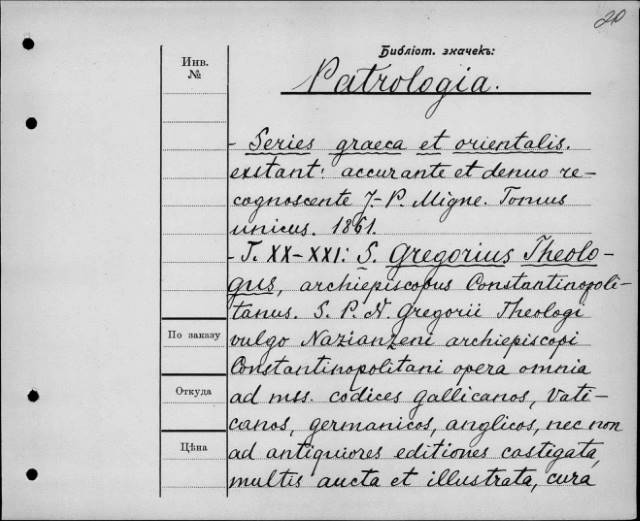 20
Библіот. значекъ:
Инв.
№
Patrologia.
- Series graeca et orientalis.
exstant: accurante et denuo re-
cognoscente J.-P. Migne. Tomus
unicus. 1861.
- T. XX-XXI: S. Gregorius Theolo-
gus, archiepiscopus Constantinopoli-
tanus. S. P. N. Gregorii Theologi
По заказу
vulgo Nazianzeni archiepiscopi
Constantinopolitani opera omnia
Откуда
ad mss. codices gallicanos, Vati-
canos, germanicos, anglicos, nec non
Цѣна
ad antiquiores editiones castigata,
multis aucta et illustrata, cura